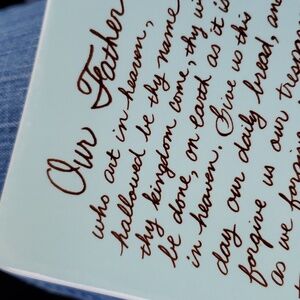 Our Father
who art in heaven,
hallowed be thy name
thy kingdom come, thy
be done, on earth as it is
in heaven. Give us this
day our daily bread, and
forgive us our
as we forgive